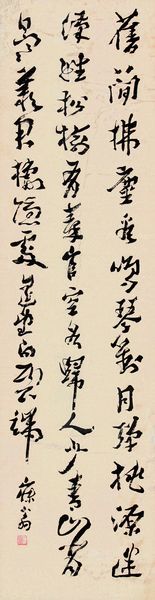 舊簡拂塵看鳴琴對月彈桃源迷
漢姓松樹有秦官空谷歸人少青山背
日寒羨君棲隱處遙望白雲端
寐翁